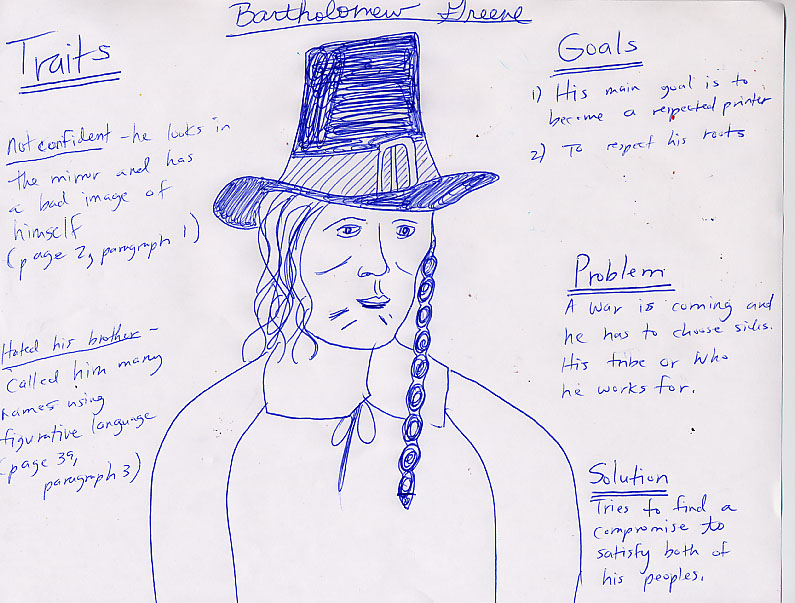 Bartholomew Greene
Traits
Not confident - he looks in
the mirror and has
a bad image of
himself
(page 2, paragraph 1)
Hated his brother -
Called him many
names using
figurative language
(page 39,
paragraph 3)
Goals
1) His main goal is to
become a respected printer
2) To respect his roots
Problem
A war is coming and
he has to choose sides.
His tribe or who
he works for.
Solution
Tries to find a
compromise to
satisfy both of
his peoples.